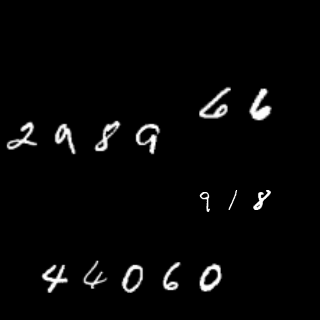 66
2989
918
44060